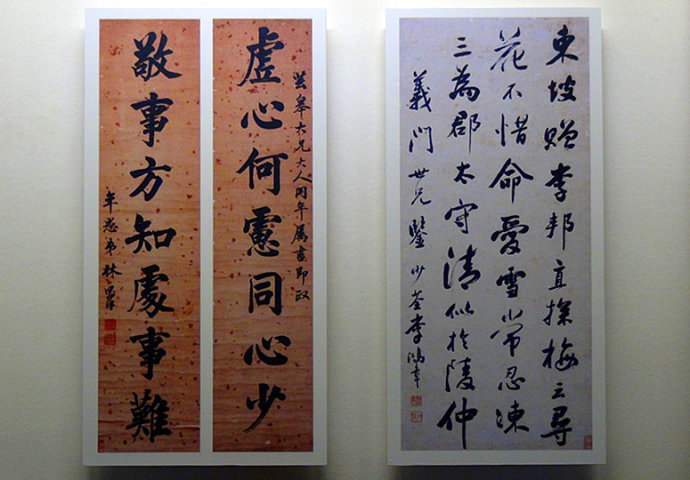 東坡贈李邦直探梅云尋
花不惜命愛雪常忍凍
三為郡太守清似於陵仲
義門世兄鑒 少荃李鴻章
芸皋大兄大人同年屬書即政
虛心何慮同心少
敬事方知處事難
年愚弟林則徐